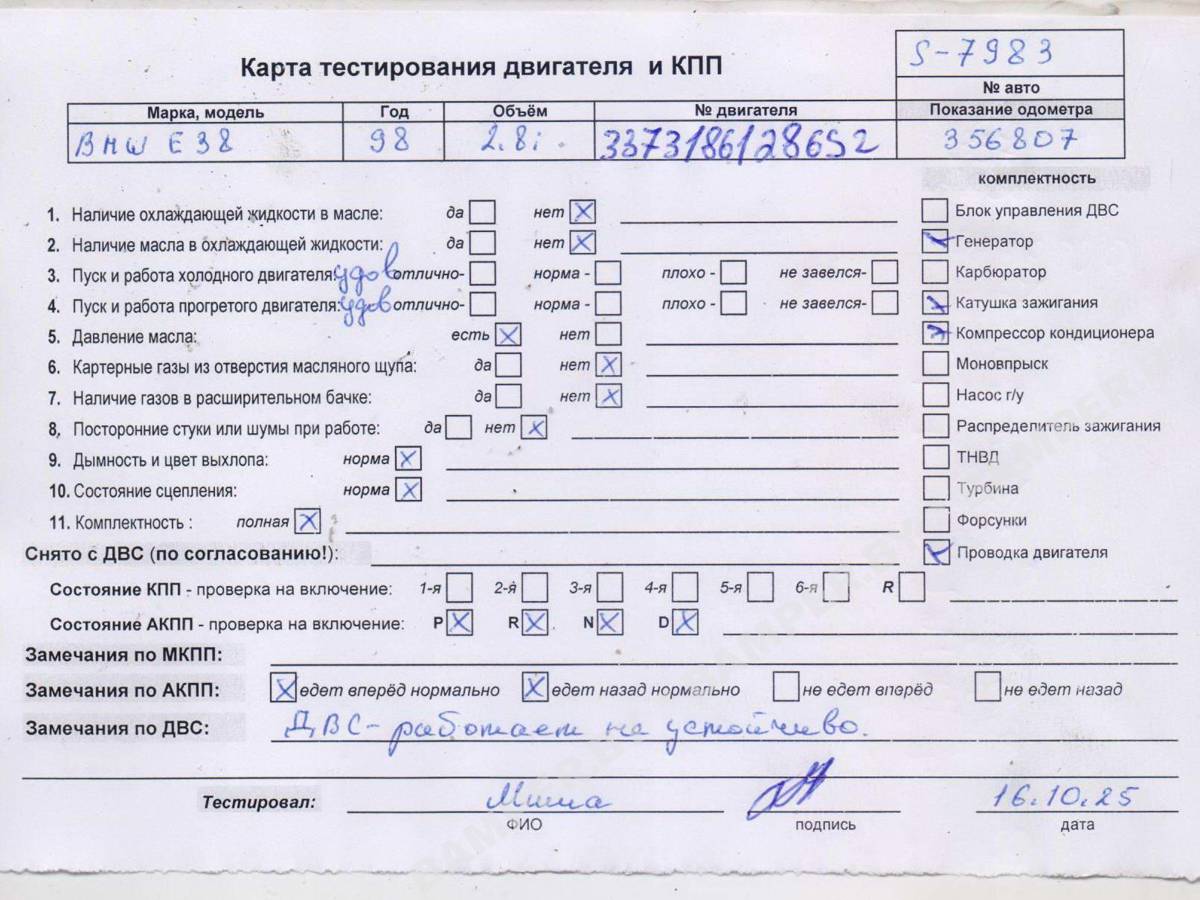 S-7983
Карта тестирования двигателя и КПП
№ авто
Марка, модель Год Объём № двигателя Показание одометра
BMW E38 98 2.8i 33731861286S2 356807
комплектность
1. Наличие охлаждающей жидкости в масле: да нет X
Блок управления ДВС
2. Наличие масла в охлаждающей жидкости: да нет X
Генератор
3. Пуск и работа холодного двигателя: удов отлично- норма - плохо - не завелся-
Карбюратор
4. Пуск и работа прогретого двигателя: удов отлично- норма - плохо - не завелся-
Катушка зажигания
5. Давление масла: есть X нет
Компрессор кондиционера
6. Картерные газы из отверстия масляного щупа: да нет X
Моновпрыск
7. Наличие газов в расширительном бачке: да нет X
Насос г/у
8, Посторонние стуки или шумы при работе: да нет X
Распределитель зажигания
9. Дымность и цвет выхлопа: норма X
ТНВД
10. Состояние сцепления: норма X
Турбина
11. Комплектность : полная X
Форсунки
Снято с ДВС (по согласованию!):
Проводка двигателя
Состояние КПП - проверка на включение: 1-я 2-я 3-я 4-я 5-я 6-я R
Состояние АКПП - проверка на включение: P X R X N X D X
Замечания по МКПП:
Замечания по АКПП: X едет вперёд нормально X едет назад нормально не едет вперёд не едет назад
Замечания по ДВС: ДВС - работает не устойчиво.
Тестировал: Миша 16.10.25
ФИО подпись дата